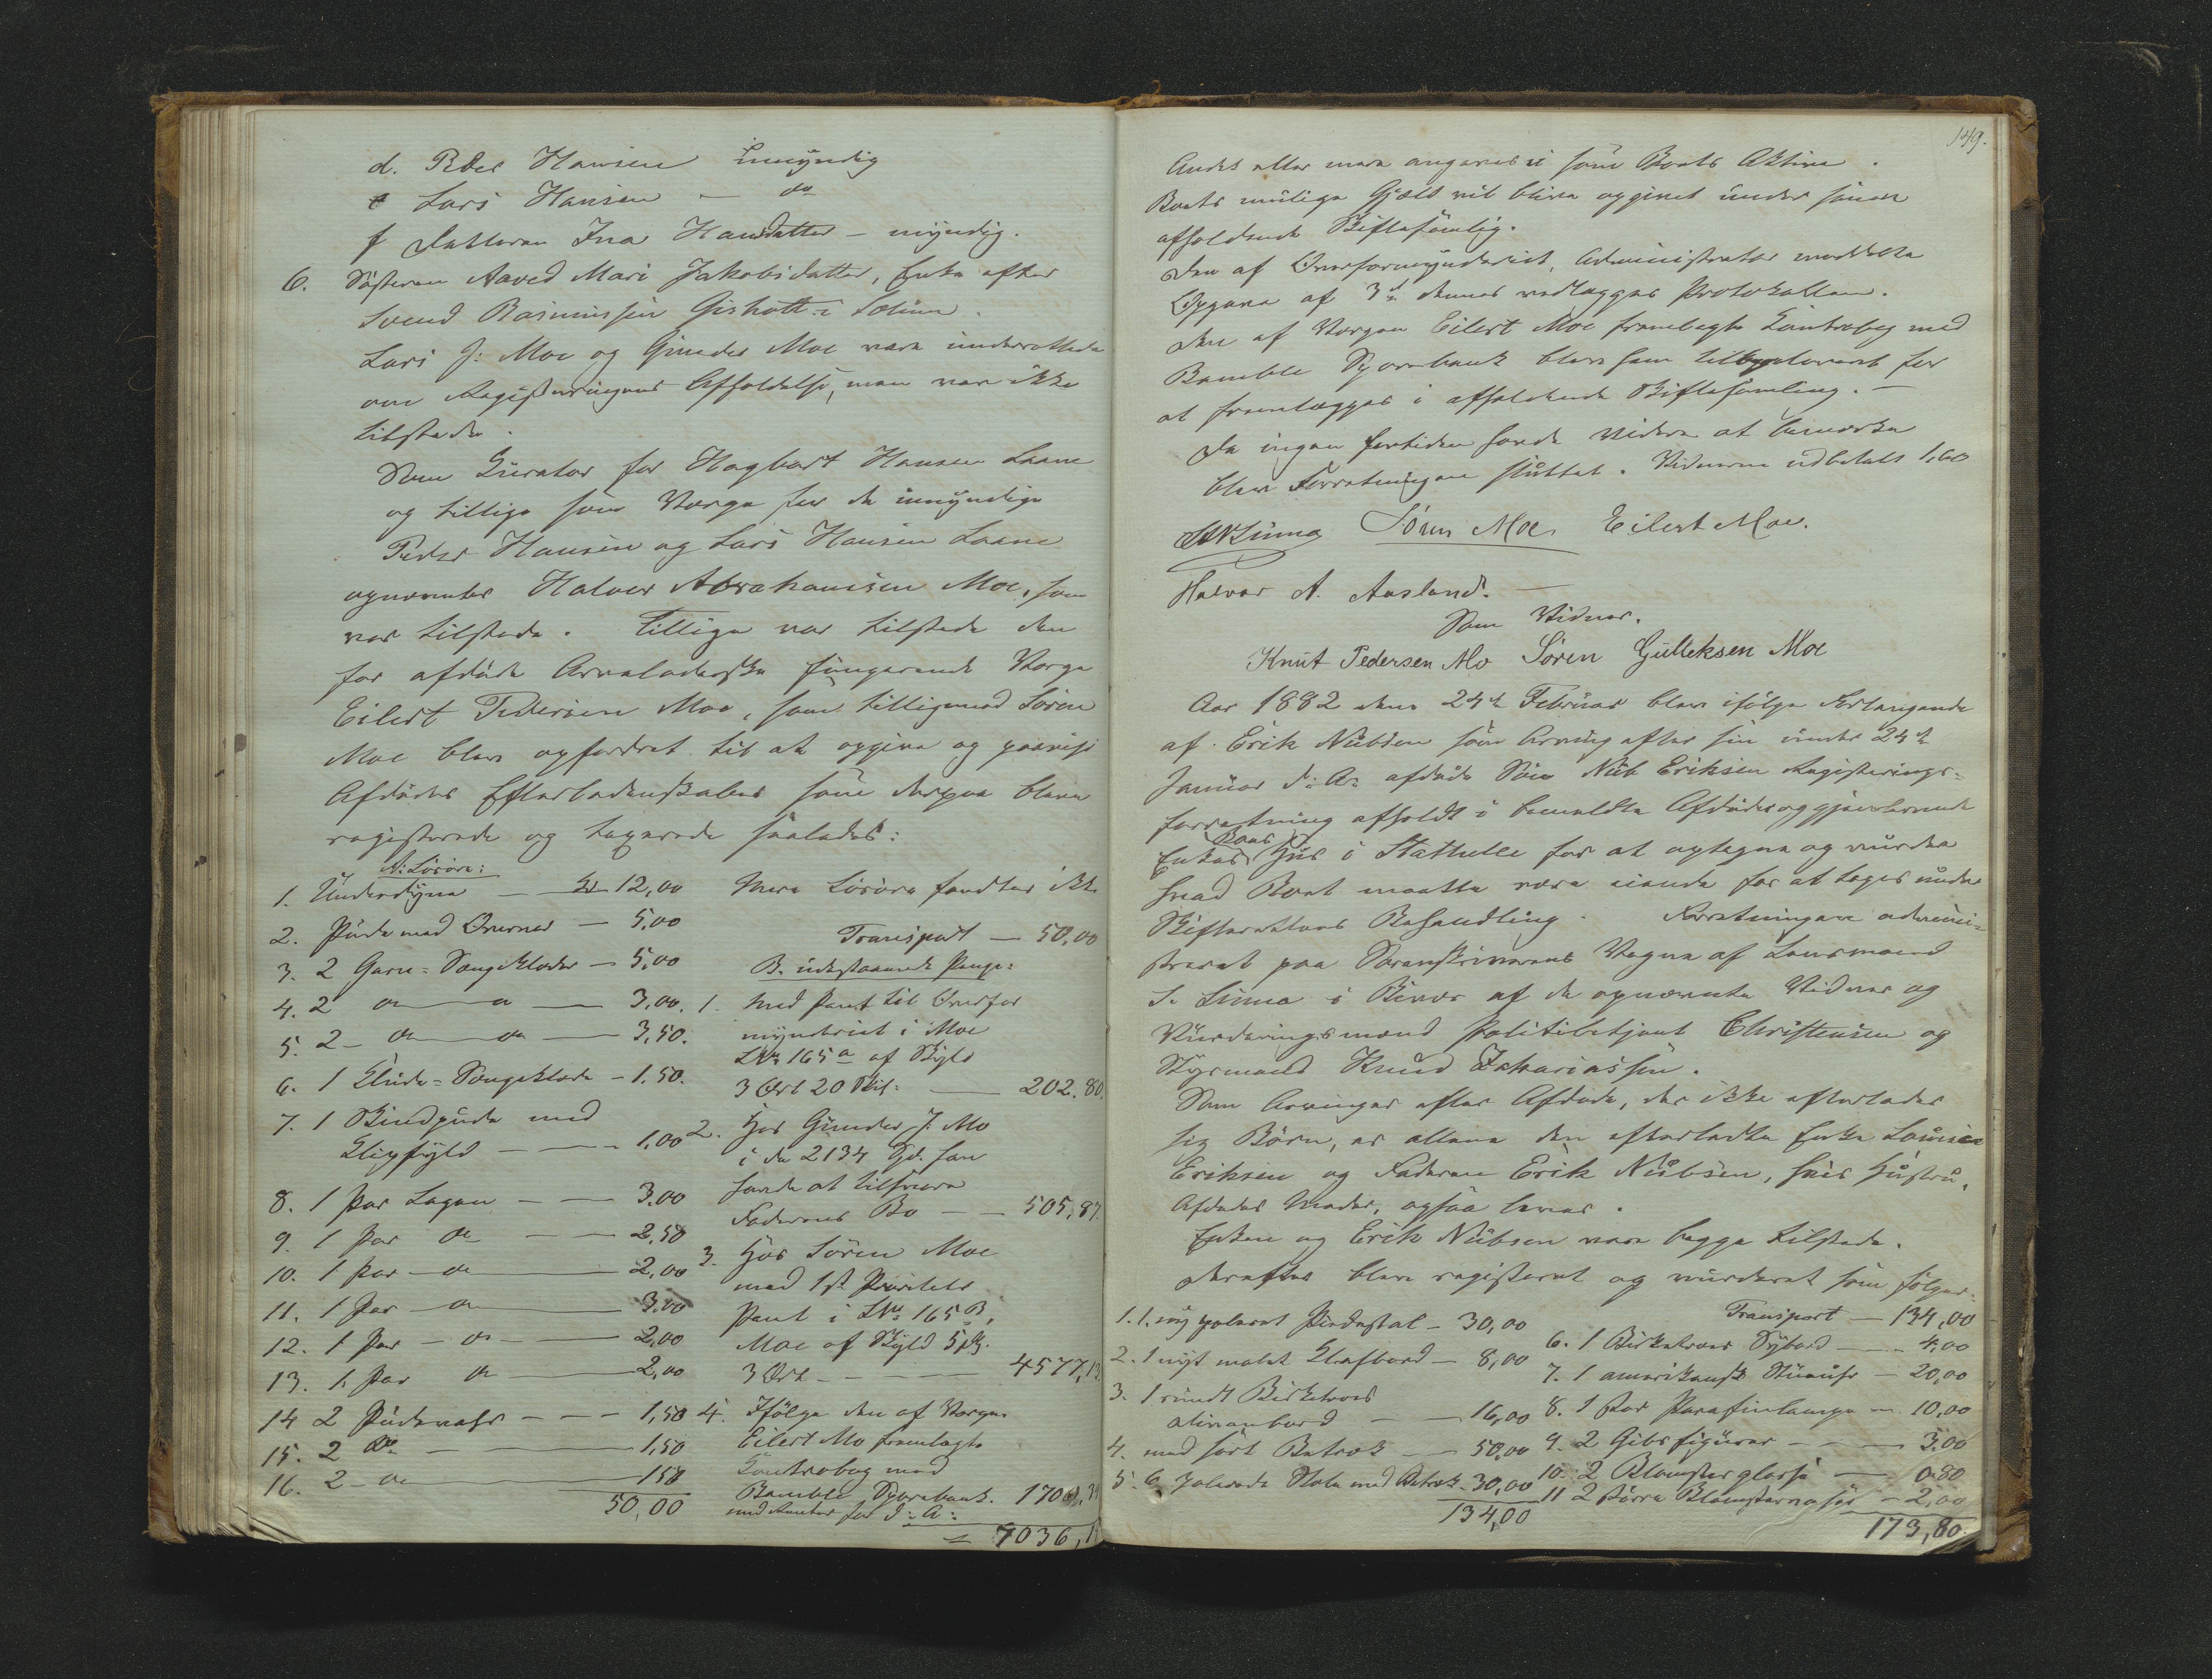 d. Peder Hansen umyndig
e Lars Hansen — do
f Datteren Ina Hansdatter – myndig.
6. Søsteren Aaved Mari Jakobsdatter, Enke efter
Svend Rasmussen Gisholt i Solum.
Lars J: Moe og Gunder Moe vare underrettede
om Registreringens Afholdelse, men var ikke
tilstede.
Som Kurator for Hagbart Hansen Laane
og tillige som Værge for de umyndige
Peder Hansen og Lars Hansen Laane
opnævntes Halvor Abrahamsen Moe, som
var tilstede. Tillige var tilstede den
for afdøde Arveladerske fungerende Værge
Eilert Pedersen Moe, som tilligemed Søren
Moe blev opfordret til at opgive og paavise
Afdødes Efterladenskaber som derpaa bleve
registrerede og taxerede saaledes:
A: Løsøre:
1. Underdyne — 12,00
2. Pude med Overvar — 5,00
3. 2 Garn-Sengeklæder — 5,00
4. 2 do do — 3,00.
5. 2 – do do — 3,50.
6. 1 Klude-Sengeklæde – 1.50.
7. 1 Skindpude med
Klipfyld — 1,00
8. 1 Par Lagen — 3.00
9. 1 Par do — 2,50
10. 1 Par – do — 2,00
11. 1 Par – do — 3,00
12. 1 Par – do — 2,00
13. 1 Par do — 2,00
14 2 Pudevahr – – – 1,50
15. 2 do — 1,50
16. 2 – do — 150
50,00
Mere Løsøre fandtes ikke
Transport — 50,00
B. udestaaende Penge:
1. Med Pant til Overfor
mynderiet i Moe
LNr 165a af Skyld
3 Ort 20 Skil: — 202.80.
2. Hos Gunder J. Mo
i de 2134 Spd. han
havde at tilsvare
Faderens Bo — 505,87.
3. Hos Søren Moe
med 1st Prioritets
Pant i LNr 165 B,
Moe af Skyld 5
3 Ort — 4577,1
4. Ifølge den af Værgen
Eilert Mo fremlagte
Kontrabog med
Bamble Sparebank. 170
med Renter for d: A:
7036,1
149.
Andet eller mere angaves ei som Boets Aktiva.
Boets mulige Gjæld vil blive opgivet under senere
afholdende Skiftesamling.
Den af Overformynderiet, Administrator meddelte
Opgave af 3d dennes vedlægges Protokollen.
Den af Værgen Eilert Moe fremlagte Kontrabog med
Bamble Sparebank blev ham tilbageleveret for
at fremlægges i afholdende Skiftesamling. —
Da ingen fortiden havde videre at bemærke
blev Forretningen sluttet. Vidnerne udbetalt 1,60
Linna Sørn Moe, Eilert Moe.
Halvor A. Aasland. —
Som Vidner.
Knut Pedersen Mo Søren Gulleksen Moe
Aar 1882 den 24de Februar blev ifølge Forlangende
af Erik Nubsen som Arving efter sin under 24de
Januar d: A: afdøde Søn Nub Eriksen Registrerings-
forretning afholdt i bemeldte Afdødes og gjenlevende
Enkes Boes Hus i Stathelle for at optegne og vurdere
hvad Boet maatte være eiende for at tages under
Skifterettens Behandling. Forretningen admini-
streret paa Sorenskriverens Vegne af Lensmand
S. Linna i Bivær af de opnævnte Vidner og
Vurderingsmænd Politibetjent Christensen og
Styrmand Knud Zakariassen.
Som Arvinger efter Afdøde, der ikke efterlader
sig Børn, er allene den efterladte Enke Lovise
Eriksen og Faderen Erik Nubsen, hvis Hustru,
Afdødes Moder, ogsaa lever.
Enken og Erik Nubsen vare begge tilstede.
Derefter blev registreret og vurderet som følger:
1. 1. ny poleret Piedestal – 30,00
2. 1 nyt malet Klafbord — 8,00
3. 1 rundt Birketræs
divanbord — 16,00
4. med sort Betræk — 50,00
5. 6 polerede Stole med Betræk. 30,00
134,00
Transport — 134,00
6. 1 Birketræes Sybord — 4,00
7. 1 amerikansk Stueuhr — 20,00
8. 1 Par Parafinlampe — 10,00
9. 2 Gibsfigurer — 3,00
10. 2 Blomsterglasse — 0.80
11 2 større Blomstervaser — 2,00
173,80.